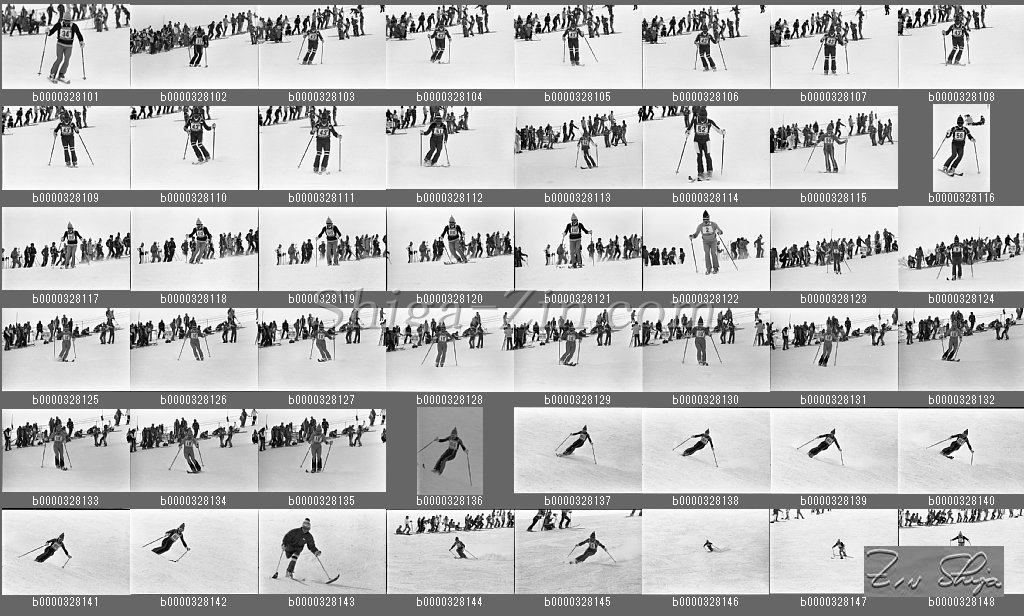 b0000328101 b0000328102 b0000328103 b0000328104 b0000328105 b0000328106 b0000328107 b0000328108
b0000328109 b0000328110 b0000328111 b0000328112 b0000328113 b0000328114 b0000328115 b0000328116
b0000328117 b0000328118 b0000328119 b0000328120 b0000328121 b0000328122 b0000328123 b0000328124
Shiga-Zin.com
b0000328125 b0000328126 b0000328127 b0000328128 b0000328129 b0000328130 b0000328131 b0000328132
b0000328133 b0000328134 b0000328135 b0000328136 b0000328137 b0000328138 b0000328139 b0000328140
Zin Shiga
b0000328141 b0000328142 b0000328143 b0000328144 b0000328145 b0000328146 b0000328147 b0000328148